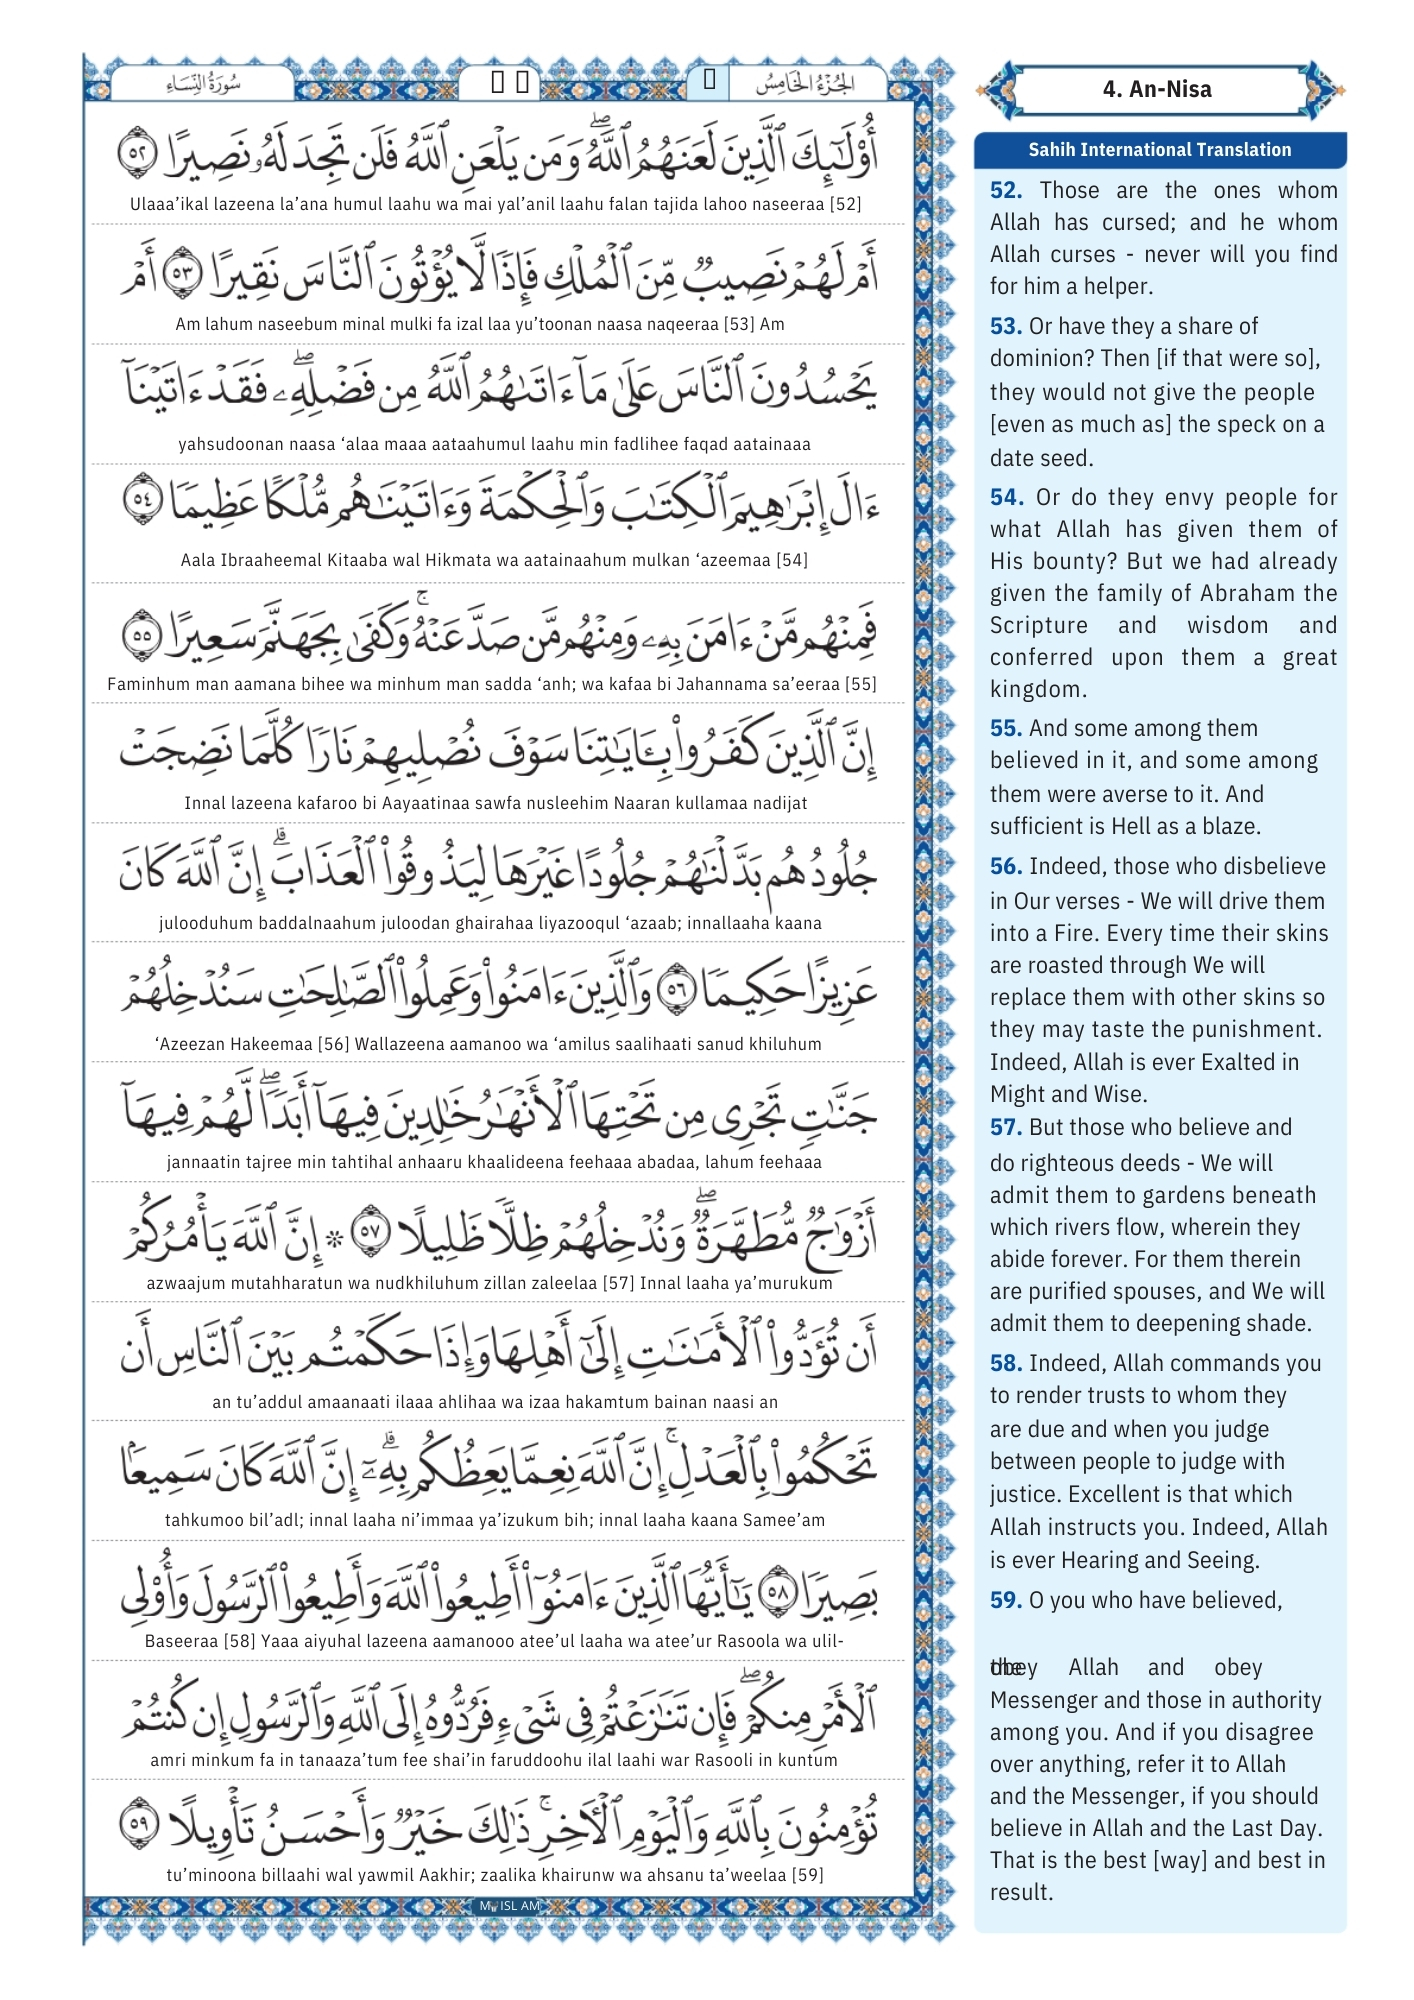 سُورَةُ النِّسَاءِ
الجُزْءُ الخَامِسُ
4. An-Nisa
أُو۟لَـٰٓئِكَ ٱلَّذِينَ لَعَنَهُمُ ٱللَّهُ ۖ وَمَن يَلْعَنِ ٱللَّهُ فَلَن تَجِدَ لَهُۥ نَصِيرًا ٥٢
Ulaaa’ikal lazeena la’ana humul laahu wa mai yal’anil laahu falan tajida lahoo naseeraa [52]
أَمْ لَهُمْ نَصِيبٌ مِّنَ ٱلْمُلْكِ فَإِذًا لَّا يُؤْتُونَ ٱلنَّاسَ نَقِيرًا ٥٣ أَمْ
Am lahum naseebum minal mulki fa izal laa yu’toonan naasa naqeeraa [53] Am
يَحْسُدُونَ ٱلنَّاسَ عَلَىٰ مَآ ءَاتَىٰهُمُ ٱللَّهُ مِن فَضْلِهِۦ ۖ فَقَدْ ءَاتَيْنَآ
yahsudoonan naasa ‘alaa maaa aataahumul laahu min fadlihee faqad aatainaaa
ءَالَ إِبْرَٰهِيمَ ٱلْكِتَـٰبَ وَٱلْحِكْمَةَ وَءَاتَيْنَـٰهُم مُّلْكًا عَظِيمًا ٥٤
Aala Ibraaheemal Kitaaba wal Hikmata wa aatainaahum mulkan ‘azeemaa [54]
فَمِنْهُم مَّنْ ءَامَنَ بِهِۦ وَمِنْهُم مَّن صَدَّ عَنْهُ ۚ وَكَفَىٰ بِجَهَنَّمَ سَعِيرًا ٥٥
Faminhum man aamana bihee wa minhum man sadda ‘anh; wa kafaa bi Jahannama sa’eeraa [55]
إِنَّ ٱلَّذِينَ كَفَرُوا۟ بِـَٔايَـٰتِنَا سَوْفَ نُصْلِيهِمْ نَارًا كُلَّمَا نَضِجَتْ
Innal lazeena kafaroo bi Aayaatinaa sawfa nusleehim Naaran kullamaa nadijat
جُلُودُهُم بَدَّلْنَـٰهُمْ جُلُودًا غَيْرَهَا لِيَذُوقُوا۟ ٱلْعَذَابَ ۗ إِنَّ ٱللَّهَ كَانَ
julooduhum baddalnaahum juloodan ghairahaa liyazooqul ‘azaab; innallaaha kaana
عَزِيزًا حَكِيمًا ٥٦ وَٱلَّذِينَ ءَامَنُوا۟ وَعَمِلُوا۟ ٱلصَّـٰلِحَـٰتِ سَنُدْخِلُهُمْ
‘Azeezan Hakeemaa [56] Wallazeena aamanoo wa ‘amilus saalihaati sanud khiluhum
جَنَّـٰتٍ تَجْرِى مِن تَحْتِهَا ٱلْأَنْهَـٰرُ خَـٰلِدِينَ فِيهَآ أَبَدًا ۖ لَّهُمْ فِيهَآ
jannaatin tajree min tahtihal anhaaru khaalideena feehaaa abadaa, lahum feehaaa
أَزْوَٰجٌ مُّطَهَّرَةٌ ۖ وَنُدْخِلُهُمْ ظِلًّا ظَلِيلًا ٥٧ * إِنَّ ٱللَّهَ يَأْمُرُكُمْ
azwaajum mutahharatun wa nudkhiluhum zillan zaleelaa [57] Innal laaha ya’murukum
أَن تُؤَدُّوا۟ ٱلْأَمَـٰنَـٰتِ إِلَىٰٓ أَهْلِهَا وَإِذَا حَكَمْتُم بَيْنَ ٱلنَّاسِ أَن
an tu’addul amaanaati ilaaa ahlihaa wa izaa hakamtum bainan naasi an
تَحْكُمُوا۟ بِٱلْعَدْلِ ۚ إِنَّ ٱللَّهَ نِعِمَّا يَعِظُكُم بِهِۦٓ ۗ إِنَّ ٱللَّهَ كَانَ سَمِيعًۢا
tahkumoo bil’adl; innal laaha ni’immaa ya’izukum bih; innal laaha kaana Samee’am
بَصِيرًا ٥٨ يَـٰٓأَيُّهَا ٱلَّذِينَ ءَامَنُوٓا۟ أَطِيعُوا۟ ٱللَّهَ وَأَطِيعُوا۟ ٱلرَّسُولَ وَأُو۟لِى
Baseeraa [58] Yaaa aiyuhal lazeena aamanooo atee’ul laaha wa atee’ur Rasoola wa ulil-
ٱلْأَمْرِ مِنكُمْ ۖ فَإِن تَنَـٰزَعْتُمْ فِى شَىْءٍ فَرُدُّوهُ إِلَى ٱللَّهِ وَٱلرَّسُولِ إِن كُنتُمْ
amri minkum fa in tanaaza’tum fee shai’in faruddoohu ilal laahi war Rasooli in kuntum
تُؤْمِنُونَ بِٱللَّهِ وَٱلْيَوْمِ ٱلْـَٔاخِرِ ۚ ذَٰلِكَ خَيْرٌ وَأَحْسَنُ تَأْوِيلًا ٥٩
tu’minoona billaahi wal yawmil Aakhir; zaalika khairunw wa ahsanu ta’weelaa [59]
Sahih International Translation
52. Those are the ones whom
Allah has cursed; and he whom
Allah curses - never will you find
for him a helper.
53. Or have they a share of
dominion? Then [if that were so],
they would not give the people
[even as much as] the speck on a
date seed.
54. Or do they envy people for
what Allah has given them of
His bounty? But we had already
given the family of Abraham the
Scripture and wisdom and
conferred upon them a great
kingdom.
55. And some among them
believed in it, and some among
them were averse to it. And
sufficient is Hell as a blaze.
56. Indeed, those who disbelieve
in Our verses - We will drive them
into a Fire. Every time their skins
are roasted through We will
replace them with other skins so
they may taste the punishment.
Indeed, Allah is ever Exalted in
Might and Wise.
57. But those who believe and
do righteous deeds - We will
admit them to gardens beneath
which rivers flow, wherein they
abide forever. For them therein
are purified spouses, and We will
admit them to deepening shade.
58. Indeed, Allah commands you
to render trusts to whom they
are due and when you judge
between people to judge with
justice. Excellent is that which
Allah instructs you. Indeed, Allah
is ever Hearing and Seeing.
59. O you who have believed,
obey Allah and obey the
Messenger and those in authority
among you. And if you disagree
over anything, refer it to Allah
and the Messenger, if you should
believe in Allah and the Last Day.
That is the best [way] and best in
result.